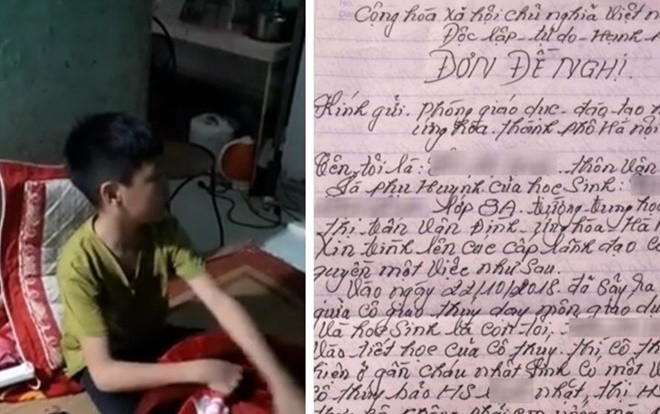 Cộng hòa xã hội chủ nghĩa Việt n
Độc lập - tự do - Hạnh
ĐƠN ĐỀ NGHỊ
Kính gửi: phòng giáo dục - đào tạo
ứng hòa - thành phố Hà nội
Tên tôi là: thôn Vân
Là phụ Huynh của học Sinh:
lớp 8A. trường trung học
thị trấn Vân Đình - ứng hòa Hà
Xin trình lên các cấp lãnh đạo
nguyện một việc như sau.
Vào ngày 22/10/2018. đã xảy ra
giữa cô giáo thuý dạy môn giáo dục
Và học Sinh là con tôi,
Vào tiết học của cô thuý. thì cô
hiện ở gần cháu nhật Sinh có một
cô thúy bảo HS nhật, thì H